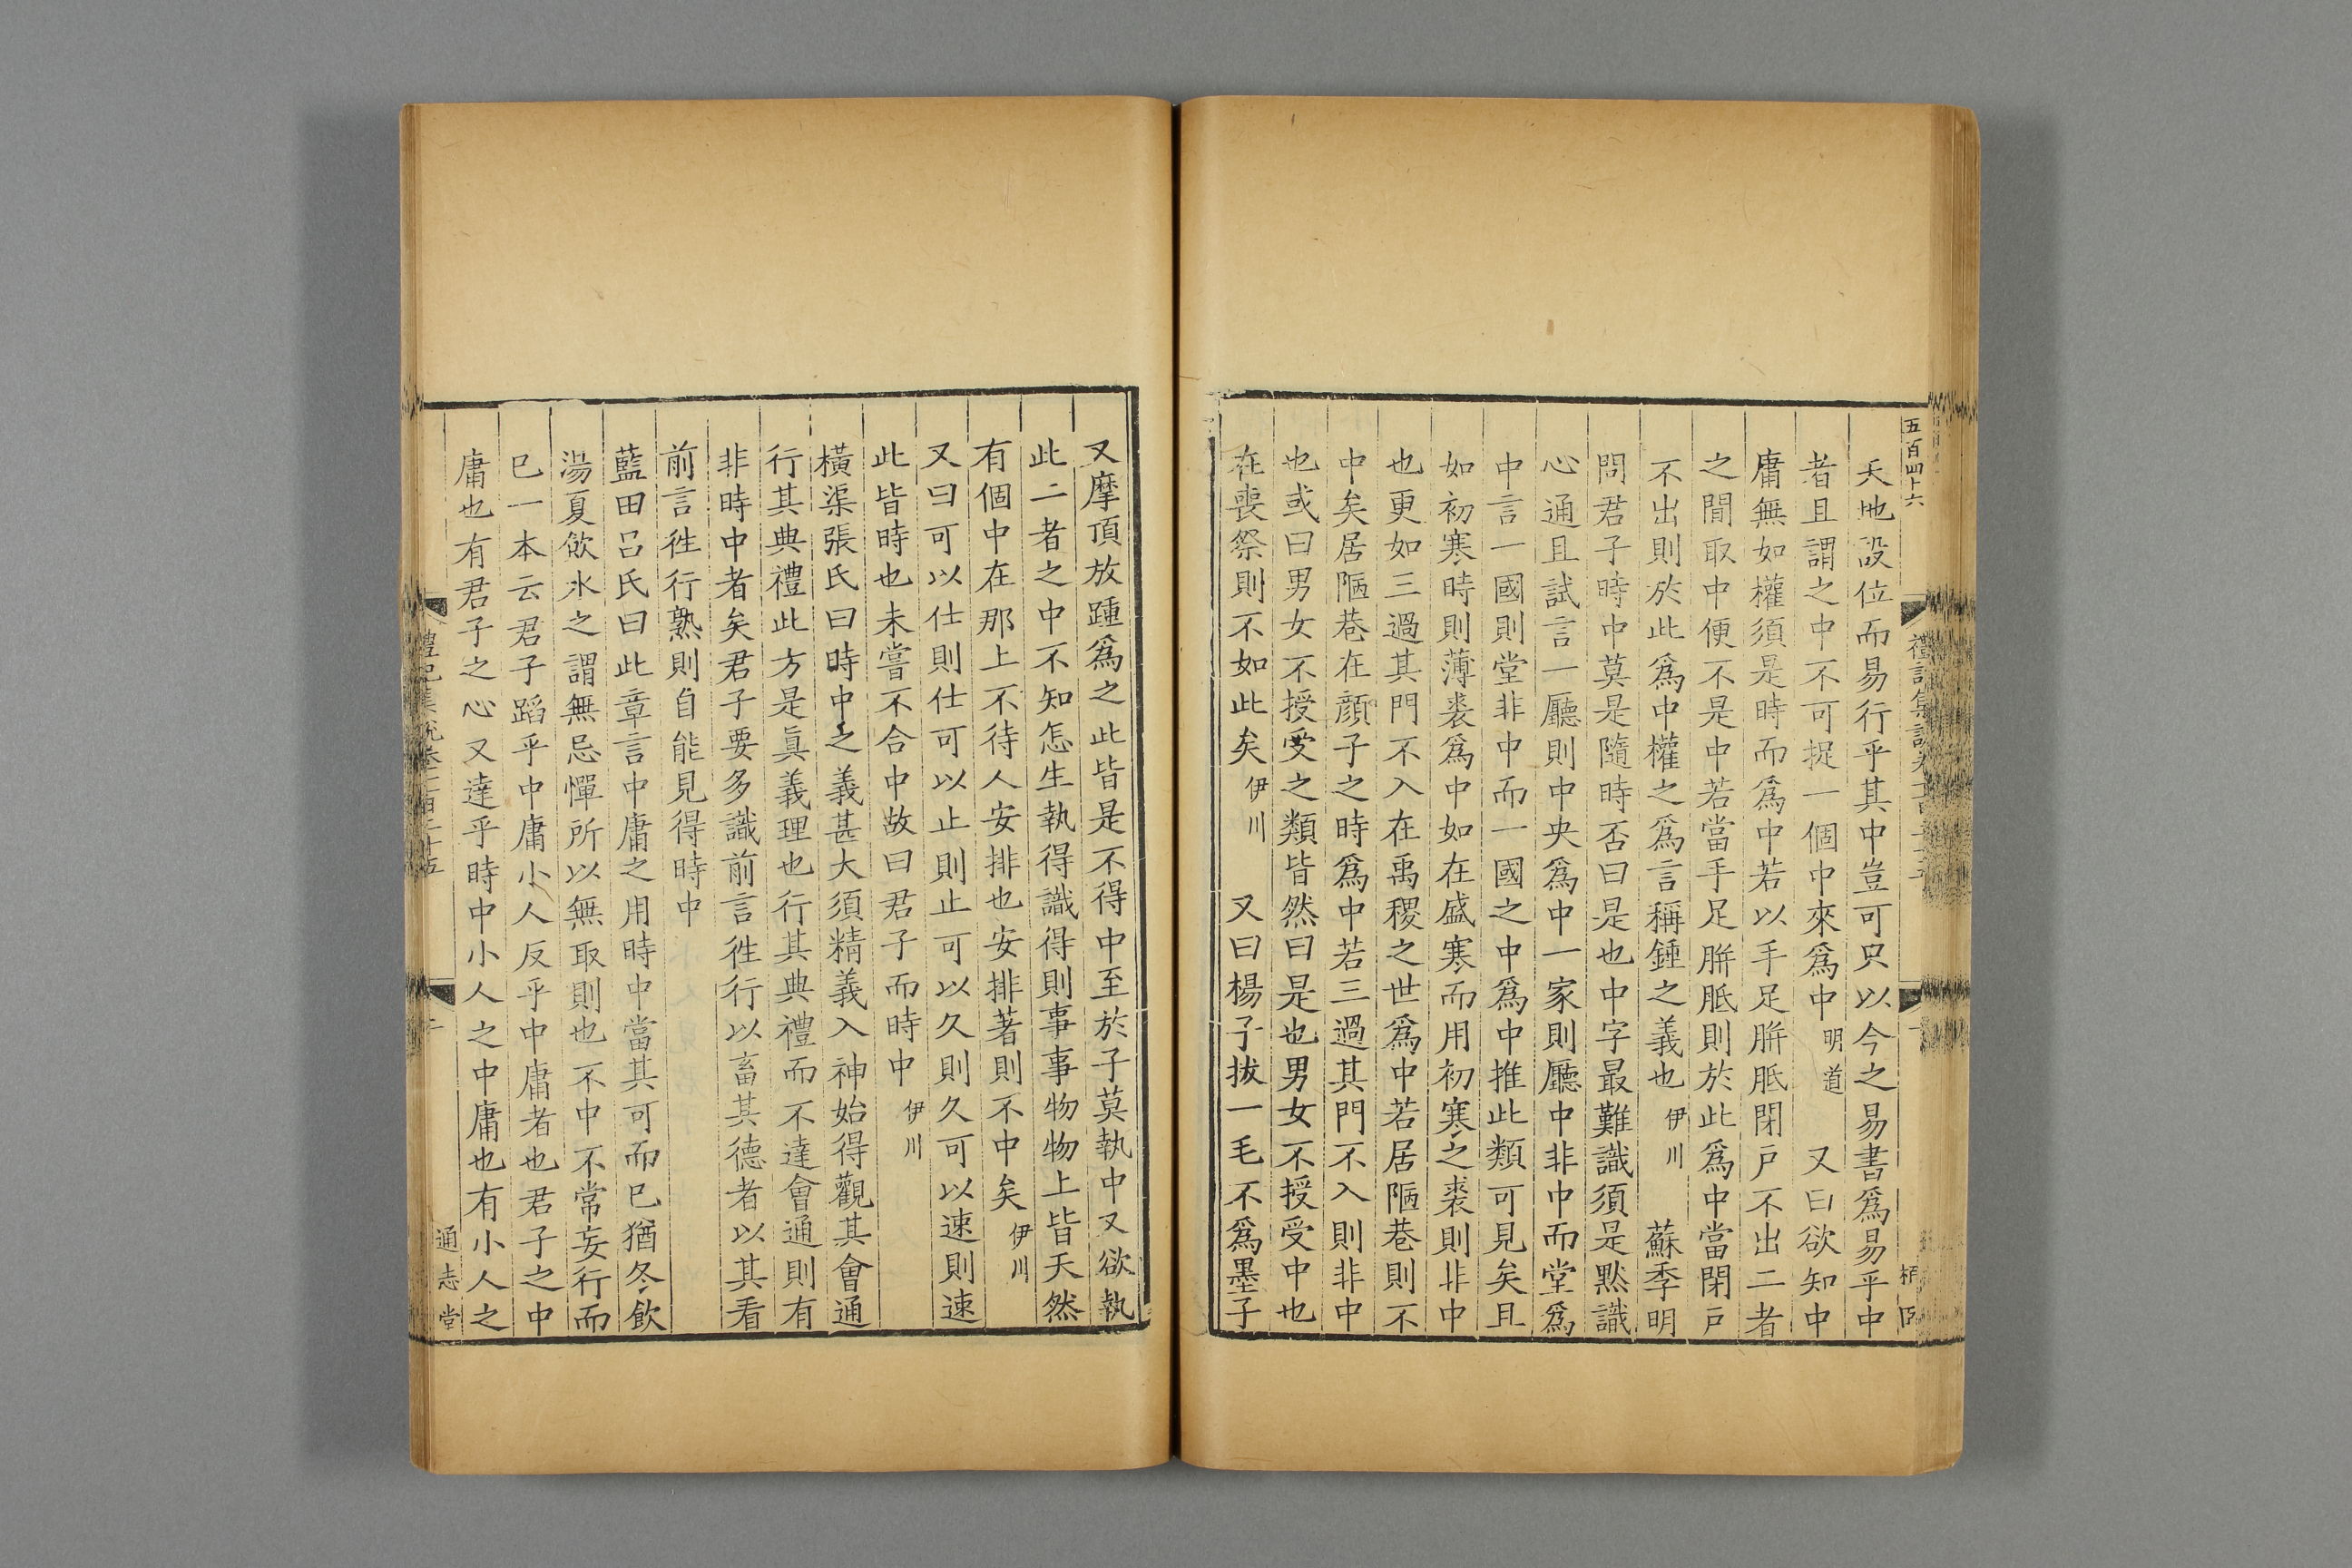 五百四十六
天地設位而易行乎其中豈可只以今之易書爲易乎中
者且謂之中不可捉一個中來爲中明道　又曰欲知中
庸無如權須是時而爲中若以手足胼胝閉戸不出二者
之間取中便不是中若當手足胼胝則於此爲中當閉戸
不出則於此爲中權之爲言稱錘之義也伊川　蘇季明
問君子時中莫是隨時否曰是也中字最難識須是黙識
心通且試言一廳則中央爲中一家則廳中非中而堂爲
中言一國則堂非中而一國之中爲中推此類可見矣且
如初寒時則薄裘爲中如在盛寒而用初寒之裘則非中
也更如三過其門不入在禹稷之世爲中若居陋巷則不
中矣居陋巷在顔子之時爲中若三過其門不入則非中
也或曰男女不授受之類皆然曰是也男女不授受中也
在喪祭則不如此矣伊川　又曰楊子拔一毛不爲墨子
又摩頂放踵爲之此皆是不得中至於子莫執中又欲執
此二者之中不知怎生執得識得則事事物物上皆天然
有個中在那上不待人安排也安排著則不中矣伊川
又曰可以仕則仕可以止則止可以久則久可以速則速
此皆時也未嘗不合中故曰君子而時中伊川
橫渠張氏曰時中之義甚大須精義入神始得觀其會通
行其典禮此方是眞義理也行其典禮而不達會通則有
非時中者矣君子要多識前言徃行以畜其德者以其看
前言徃行熟則自能見得時中
藍田呂氏曰此章言中庸之用時中當其可而已猶冬飲
湯夏飲水之謂無忌憚所以無取則也不中不常妄行而
已一本云君子蹈乎中庸小人反乎中庸者也君子之中
庸也有君子之心又達乎時中小人之中庸也有小人之
通志堂